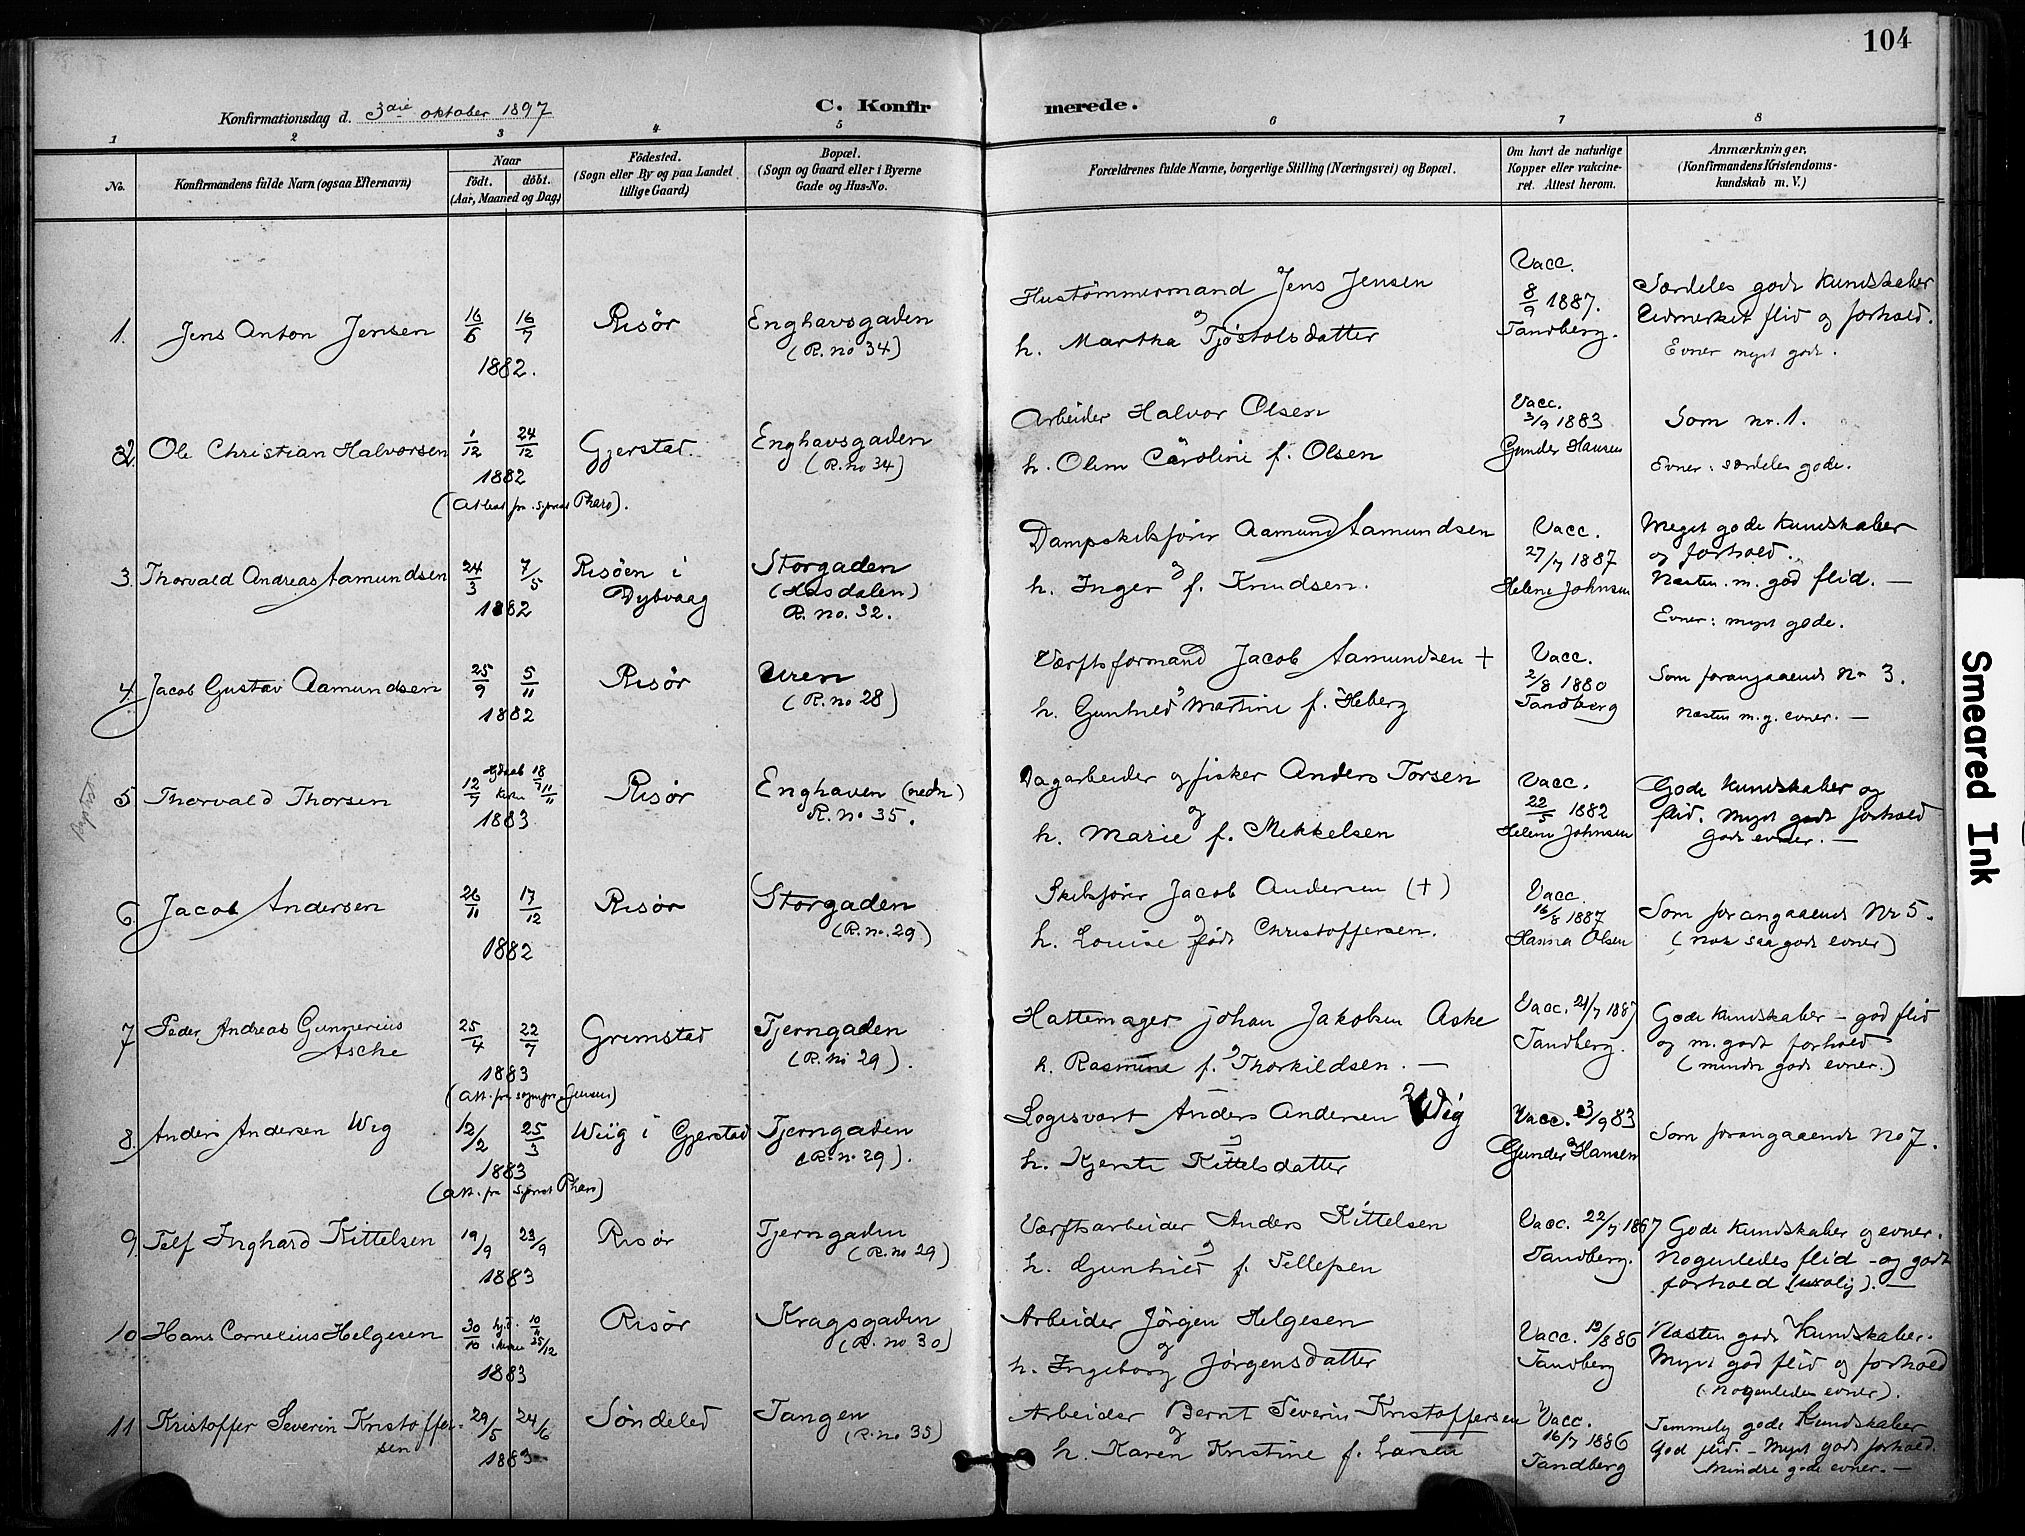 104
Konfirmationsdag d. 3die oktober 1897
C. Konfirmerede.
1 2 3 4 5 6 7 8
No.
Konfirmandens fulde Navn (ogsaa Efternavn)
Naar
födt. döbt.
(Aar, Maaned og Dag)
Födested.
(Sogn eller By og paa Landet
tillige Gaard)
Bopæl.
(Sogn og Gaard eller i Byerne
Gade og Hus-No.
Forældrenes fulde Navne, borgerlige Stilling (Næringsvei) og Bopæl.
Om havt de naturlige
Kopper eller vakcine-
ret. Attest herom.
Anmærkninger.
(Konfirmandens Kristendoms-
kundskab m. V.)
1. Jens Anton Jensen
16/6 16/7
1882.
Risør
Enghavsgaden
(R. no 34)
Hustømmermand Jens Jensen
og
h. Martha Tjøstolsdatter
Vacc.
8/9 1887.
Tandberg.
Særdeles gode kundskaber
Udmerket flid og forhold.
Evner myst gode.
2. Ole Christian Halvorsen
1/12 24/12
1882
(Attest fra Sognest Pharo).
Gjerstad.
Enghavsgaden
(R. no 34)
Arbeider Halvor Olsen
h. Oline Caroline f. Olsen
Vacc.
3/9 1883
Gunder Hansen
Som nr. 1.
Evner: særdeles gode.
3. Thorvald Andreas Aamundsen
24/3 7/5
1882
Risøen i
Dybvaag
Storgaden
(Hasdalen)
R. no. 32.
Dampskibsfører Aamund Aamundsen
og
h. Inger f. Knudsen.
Vacc.
27/7 1887
Helene Johnsen
Meget gode kundskaber
og forhold.
Næsten m. god flid. —
Evner: myst gode.
4. Jacob Gustav Aamundsen
25/9 5/11
1882
Risør
Uren
(R. no 28)
Værftsformand Jacob Aamundsen +
h. Gunhild Martine f. Heberg
Vacc.
2/8 1880
Tandberg
Som forangaaende No 3.
Næsten m. g. evner. —
Baptist.
5 Thorvald Thorsen
12/7 18/7 kirke 11/11
1883
Risør
Enghaven (nedn)
R. No 35.
Dagarbeider og fisker Anders Torsen
og
h. Marie f. Mekkelsen
Vacc.
22/5 1882
Helene Johnsen
Gode kundskaber og
flid. Myst godt forhold
gode evner. —
6. Jacob Andersen
26/11 17/12
1882
Risør
Storgaden
(R. no. 29)
Skibsfører Jacob Andersen (+)
og
h. Louise født Christoffersen.
Vacc.
16/8 1887
Hanna Olsen
Som forangaaende Nr 5.
(nok saa gode evner)
7 Peder Andreas Gunnerius
Asche
25/4 22/7
1883
Grimstad
Tjerngaden
(R. no 29).
Hattemager Johan Jakobsen Aske
og
h. Rasmine f. Thorkildsen. —
Vacc. 21/7 1887
Tandberg.
Gode kundskaber — god flid
og m. godt forhold
(mindre gode evner.)
8. Anders Andersen Wig
12/2 25/3
1883
(att. fra Sognest Pharo)
Wiig i Gjerstad
Tjerngaden
(R. no. 29).
Logisvært Anders Andersen Wig
og
h. Kjersti Kittelsdatter
Vacc. 3/9 83
Gunder Hansen
Som forangaaende No 7.
9. Telf Inghard Kittelsen
19/9 23/9
1883
Risør
Tjerngaden
(R. no 29)
Værftsarbeider Anders Kittelsen
og
h. Gunhild f. Tellefsen
Vacc. 22/7 1867
Tandberg.
Gode kundskaber og evner.
Nogenledes flid — og godt
forhold (urolig). —
10 Hans Cornelius Helgesen
30/10 kirke 25/12
1883
Risør
Kragsgaden
(R. no 30)
Arbeider Jörgen Helgesen
og
h. Ingeborg Jørgensdatter
Vacc. 13/8 86
Tandberg
Næsten gode Kundskaber.
Myst god flid og forhold
(nogenledes evner).
11 Kristoffer Severin Kristoffer-
sen
29/5 24/6
1883
Söndeled
Tangen
(R. no 35)
Arbeider Bernt Severin Kristoffersen
og
h. Karen Kristine f. Larsen
Vacc.
16/7 1886
Tandberg
Temmelig gode Kundskaber
God flid. — Myst godt forhold.
Mindre gode evner. —
Smeared Ink